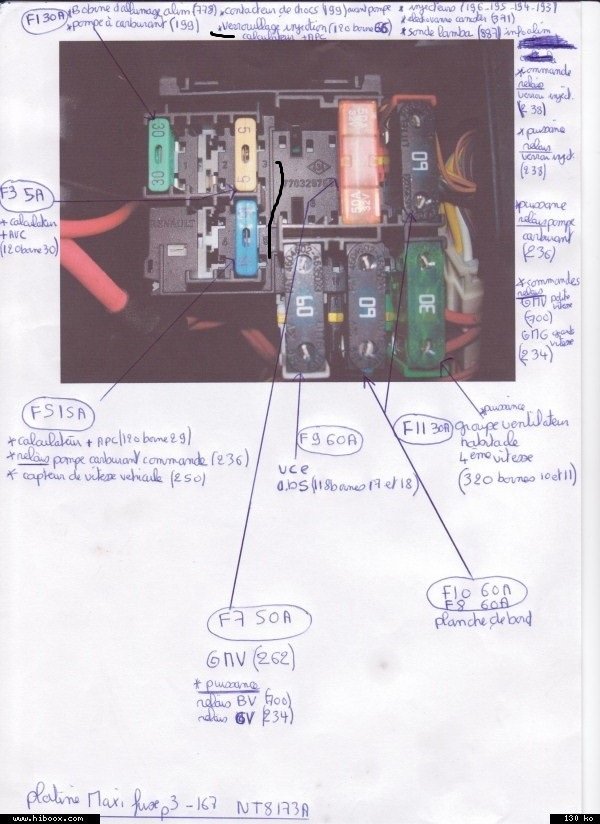 F1 30A
* Bobine d'allumage alim (778)
* pompe à carburant (199)
* contacteur de chocs (199) avant pompe
* verrouillage injection (120 borne 66)
calculateur + APC
* injecteurs (196-195-194-193)
* électrovanne canister (371)
* sonde lambda (887) info alim
* commande
relais
verrou inject.
(238)
* puissance
relais
verrou inject.
(238)
* puissance
relais pompe
carburant
(236)
* commandes
relais
GMV petite
vitesse
(700)
GMG grande
vitesse
(234)
F3 5A
* calculateur
+ AVC
(120 borne 30)
30
30
5
5
15
1
2
3
4
7703297
RENAULT
50A
32V
60
60
60
30
F5 15A
* calculateur + APC (120 borne 29)
* relais pompe carburant commande (236)
* capteur de vitesse vehicule (250)
F9 60A
UCE
ABS (118 bornes 17 et 18)
F11 30A
* puissance
groupe ventilateur
habitacle
4eme vitesse
(320 bornes 10 et 11)
F10 60A
F8 60A
planche de bord
F7 50A
GMV (262)
* puissance
relais BV (700)
relais GV (234)
platine Maxi fuse p3-167 NT8173A
www.hiboox.com
130 ko